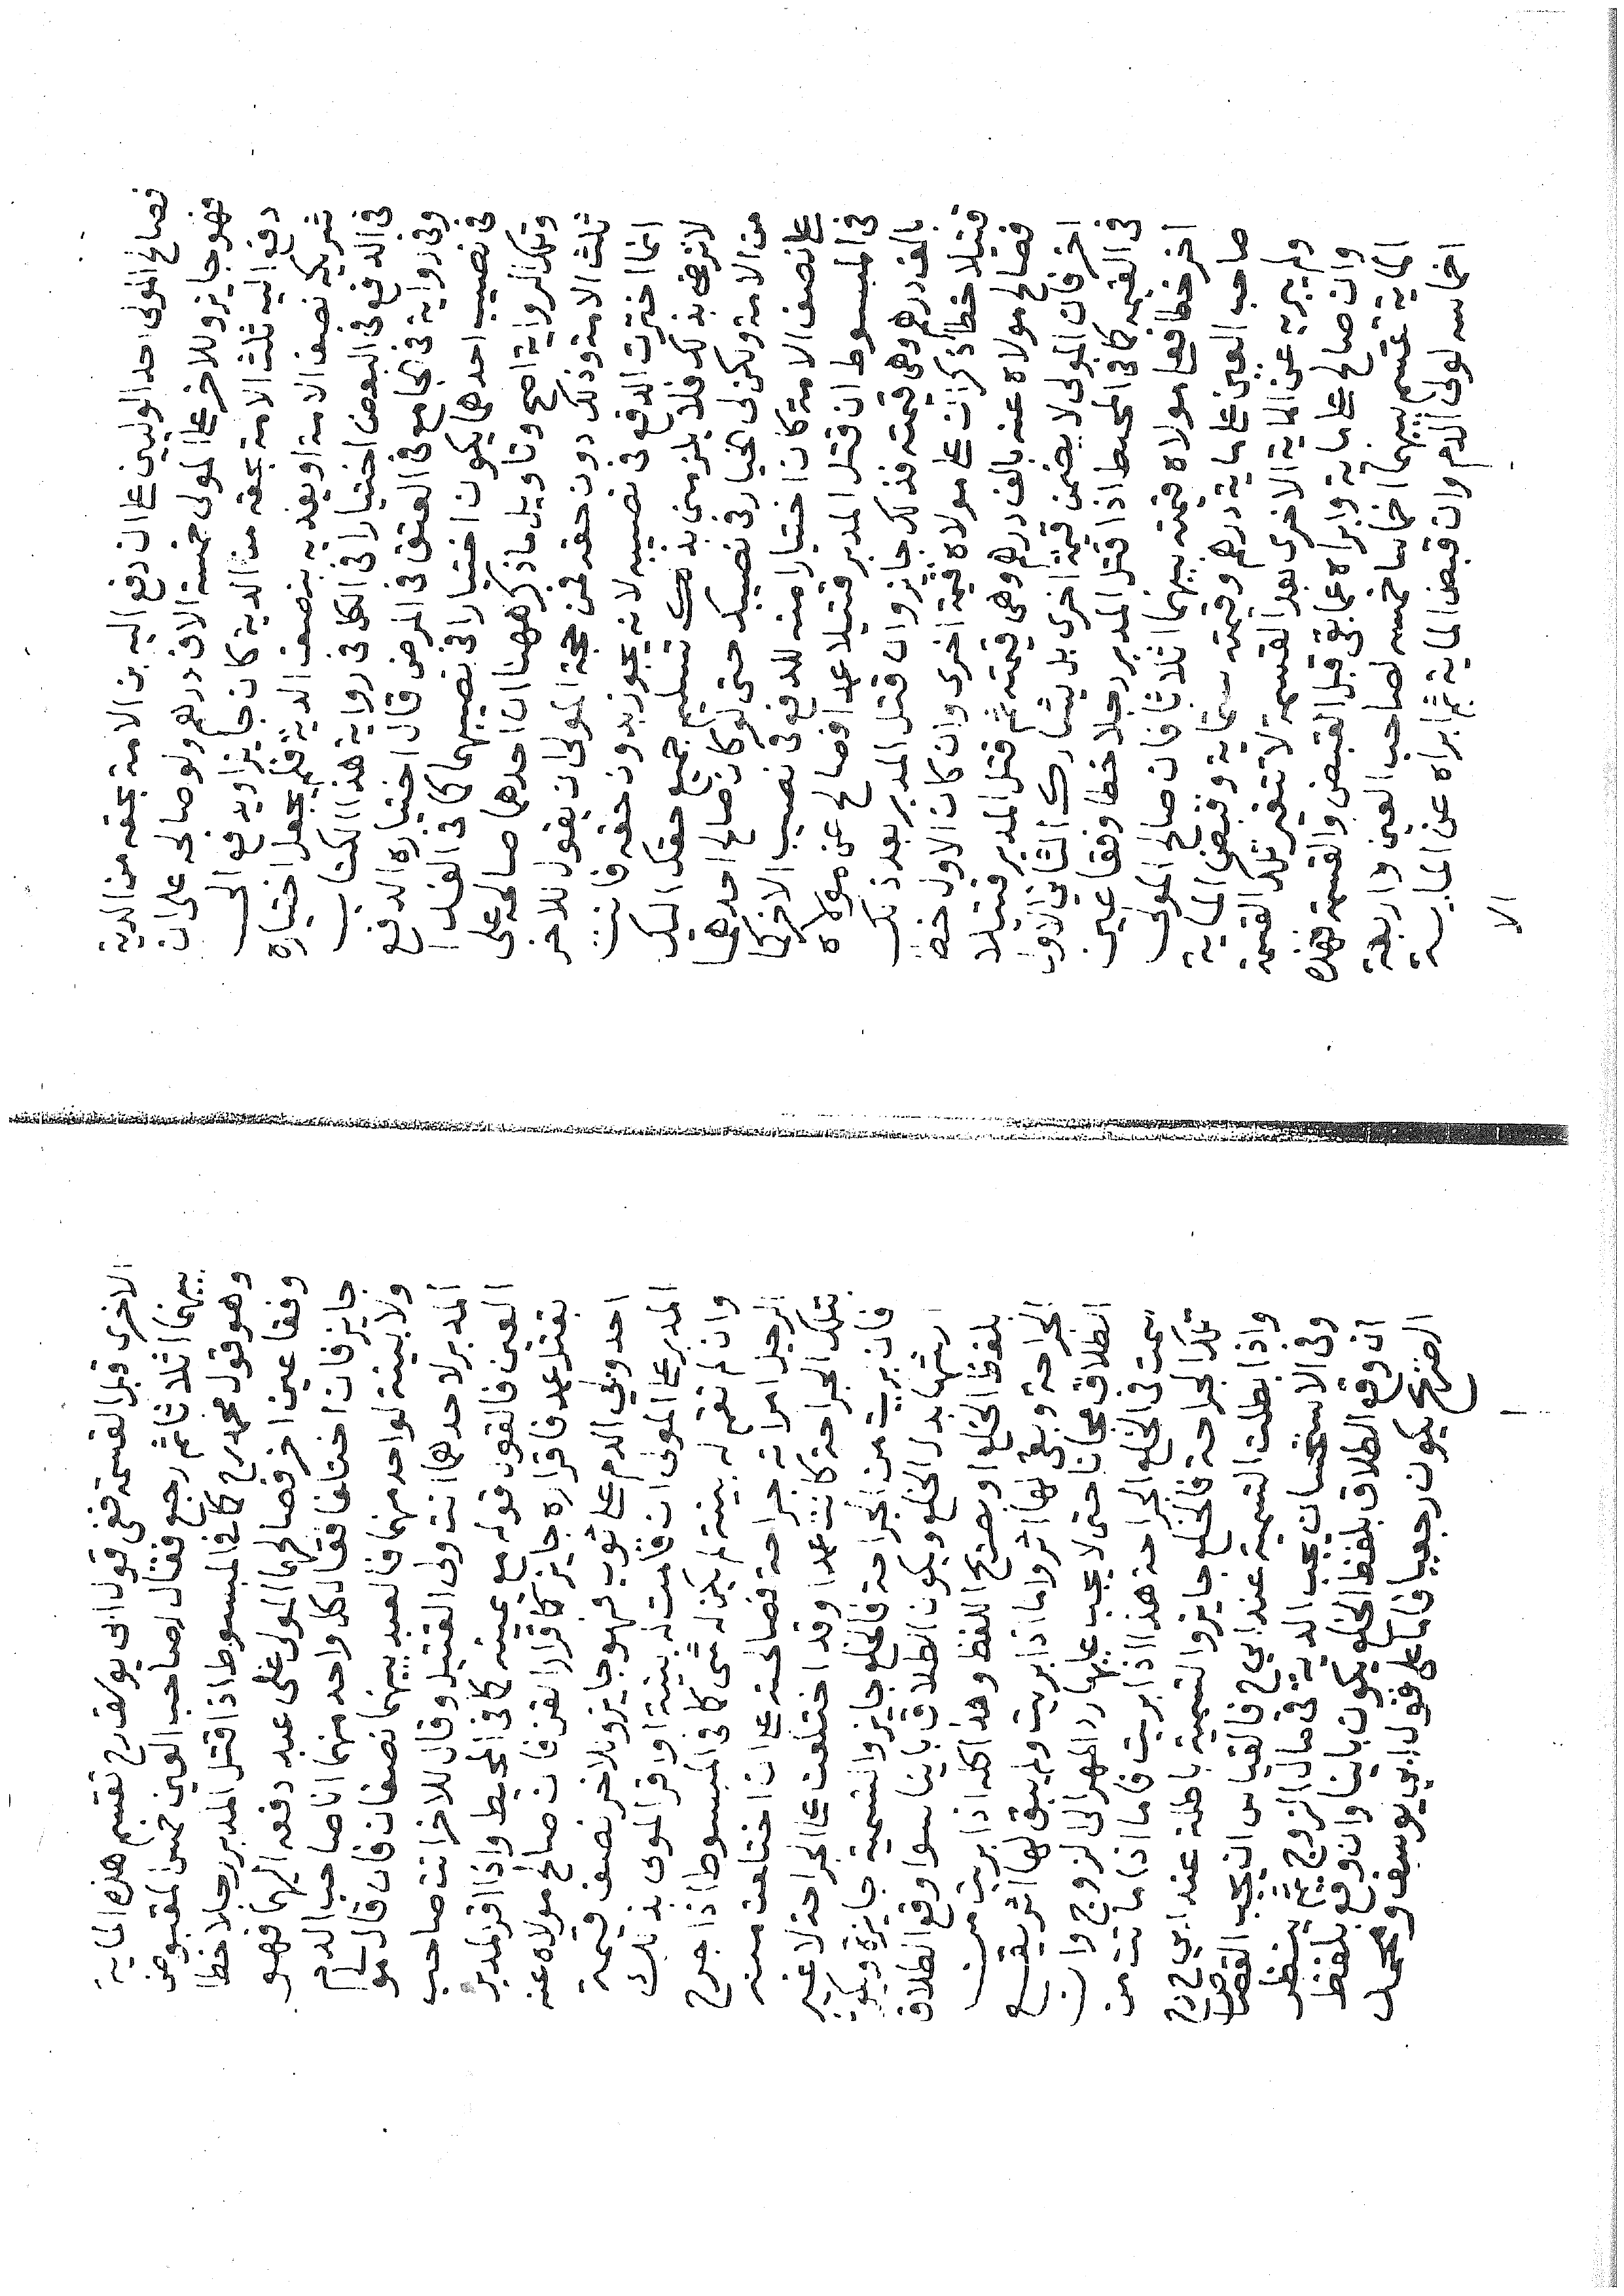 فصالح المولى احد الوليين على ان دفع اليه بن الامة بحقه من الدية
فهو جايز وللاخر على المولى خمسة الاف درهم ولو صالحه على ان
دفع اليه ثلث الامة بحقه من الدية كان جايزا ويدفع الى
شريكه نصف الامة او يفديه بنصف الدية فلم يجعل اختياره
في الدفع في البعض اختيارا في الكل في رواية هذا الكتاب
وفي رواية في الجامع في العتق في المرض قال اختياره الدفع
في نصيب احدهما يكون اختيارا في نصيبهما كما في الفداء
وتلك الرواية اصح وتاويل ما ذكر ههنا ان احدهما صالحه على
ثلث الامة وذلك دون حقه فمن حجة المولى ان يقول للاخر
انما اخترت الدفع في نصيبه لانه يجوز بدون حقه فانت
لا ترضى بذلك فلا يلزمني بذلك تسليم جميع حقك اليك
من الامة ولكن لي الخيار في نصيبك حتى لو كان صالح احدهما
على نصف الامة كان اختيارا منه للدفع في نصيب الاخر كما
في المبسوط ان قتل المدبر قتيلا عمدا فصالح عن مولاه
بالف درهم وهي قيمته فذلك جايز وان قتل المدبر بعد ذلك
قتيلا خطا ذكر ان على مولاه قيمة اخرى وان كان الاول خطا
فصالح مولاه عنه بالف درهم وهي قيمته ثم قتل المدبر قتيلا
اخر فان المولى لا يضمن قيمة اخرى بل يشارك الثاني الاول
في القيمة كما في المحيط اذا قتل المدبر رجلا خطا وفقا عين
اخر خطا فعلى مولاه قيمته بينهما اثلاثا فان صالح المولى
صاحب العين على ماية درهم وقيمته ستماية وقبض الماية
ولم يبريه عن الماية الاخرى بعد القسمة لا تتغير تلك القسمة
وان صالح على ماية وابراه عما بقى قبل القبض والقسمة فهذه
الماية تقسم بينهما اخماسا خمسه لصاحب العين واربعة
اخماسه لولى الدم وان قبض الماية ثم ابراه عن الماية
الا
الاخرى قبل القسمة ففى قول ابى يوسف رح تقسم هذه الماية
بينهما اثلاثا ثم رجع فقال لصاحب العين خمس المقبوض
وهو قول محمد رح كما في المبسوط اذا قتل المدبر رجلا خطا
وفقا عين اخر فصالحهما المولى على عبد دفعه اليهما فهو
جايز فان اختلفا فقال كل واحد منهما انا صاحب الدم
ولا بينة لواحد منهما فالعبد بينهما نصفان فان قال مو
المدبر لاحدهما انت ولى القتيل وقال للاخر انت صاحب
العين فالقول قوله مع يمينه كما في المحيط واذا اقر المدبر
بقتل عمد فاقراره جايز كاقرار القن فان صالح مولاه عنه
احد وليي الدم على ثوب فهو جايز وللاخر نصف قيمة
المدبر على المولى ان قامت له بينة او اقر المولى بذلك
وان لم تقم له بينة لم يكن له شى كما في المبسوط اذا جرح
الرجل امراته جراحة فصالحته على ان اختلعت منه
بتلك الجراحة كانت عمدا وقد اختلعت على الجراحة لا غير
فان بريت من الجراحة فالخلع جايز والتسمية جايزة ويكون
ارشها بدل الخلع ويكون الطلاق باينا سوا وقع الطلاق
بلفظ الخلع او بصريح اللفظ وهذا كله اذا بريت من
الجراحة وبقى لها اثر واما اذا بريت ولم يبق لها اثر يقع
الطلاق مجانا حتى لا يجب عليها رد المهر الى الزوج وان
سمت في الخلع الجراحة هذا اذا بريت فاما اذا ماتت من
تلك الجراحة فالخلع جايز والتسمية باطلة عند ابي ح رح
واذا بطلت التسمية عند ابي ح فالقياس ان يجب القصاص
وفى الاستحسان يجب الدية في مال الزوج ثم ينظر
ان وقع الطلاق بلفظ الخلع يكون باينا وان وقع بلفظ
الصريح يكون رجعيا فاما على قول ابي يوسف ومحمد